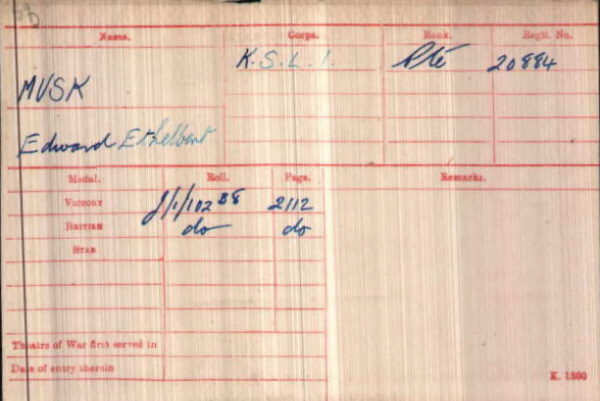 Name. Corps. Rank. Regtl. No.
K.S.L.I. Pte 20884
MUSK
Edward Ethelbert
Medal. Roll. Page. Remarks.
VICTORY J/1/102 B8 2112
BRITISH do do
STAR
Theatre of War first served in
Date of entry therein
K. 1380